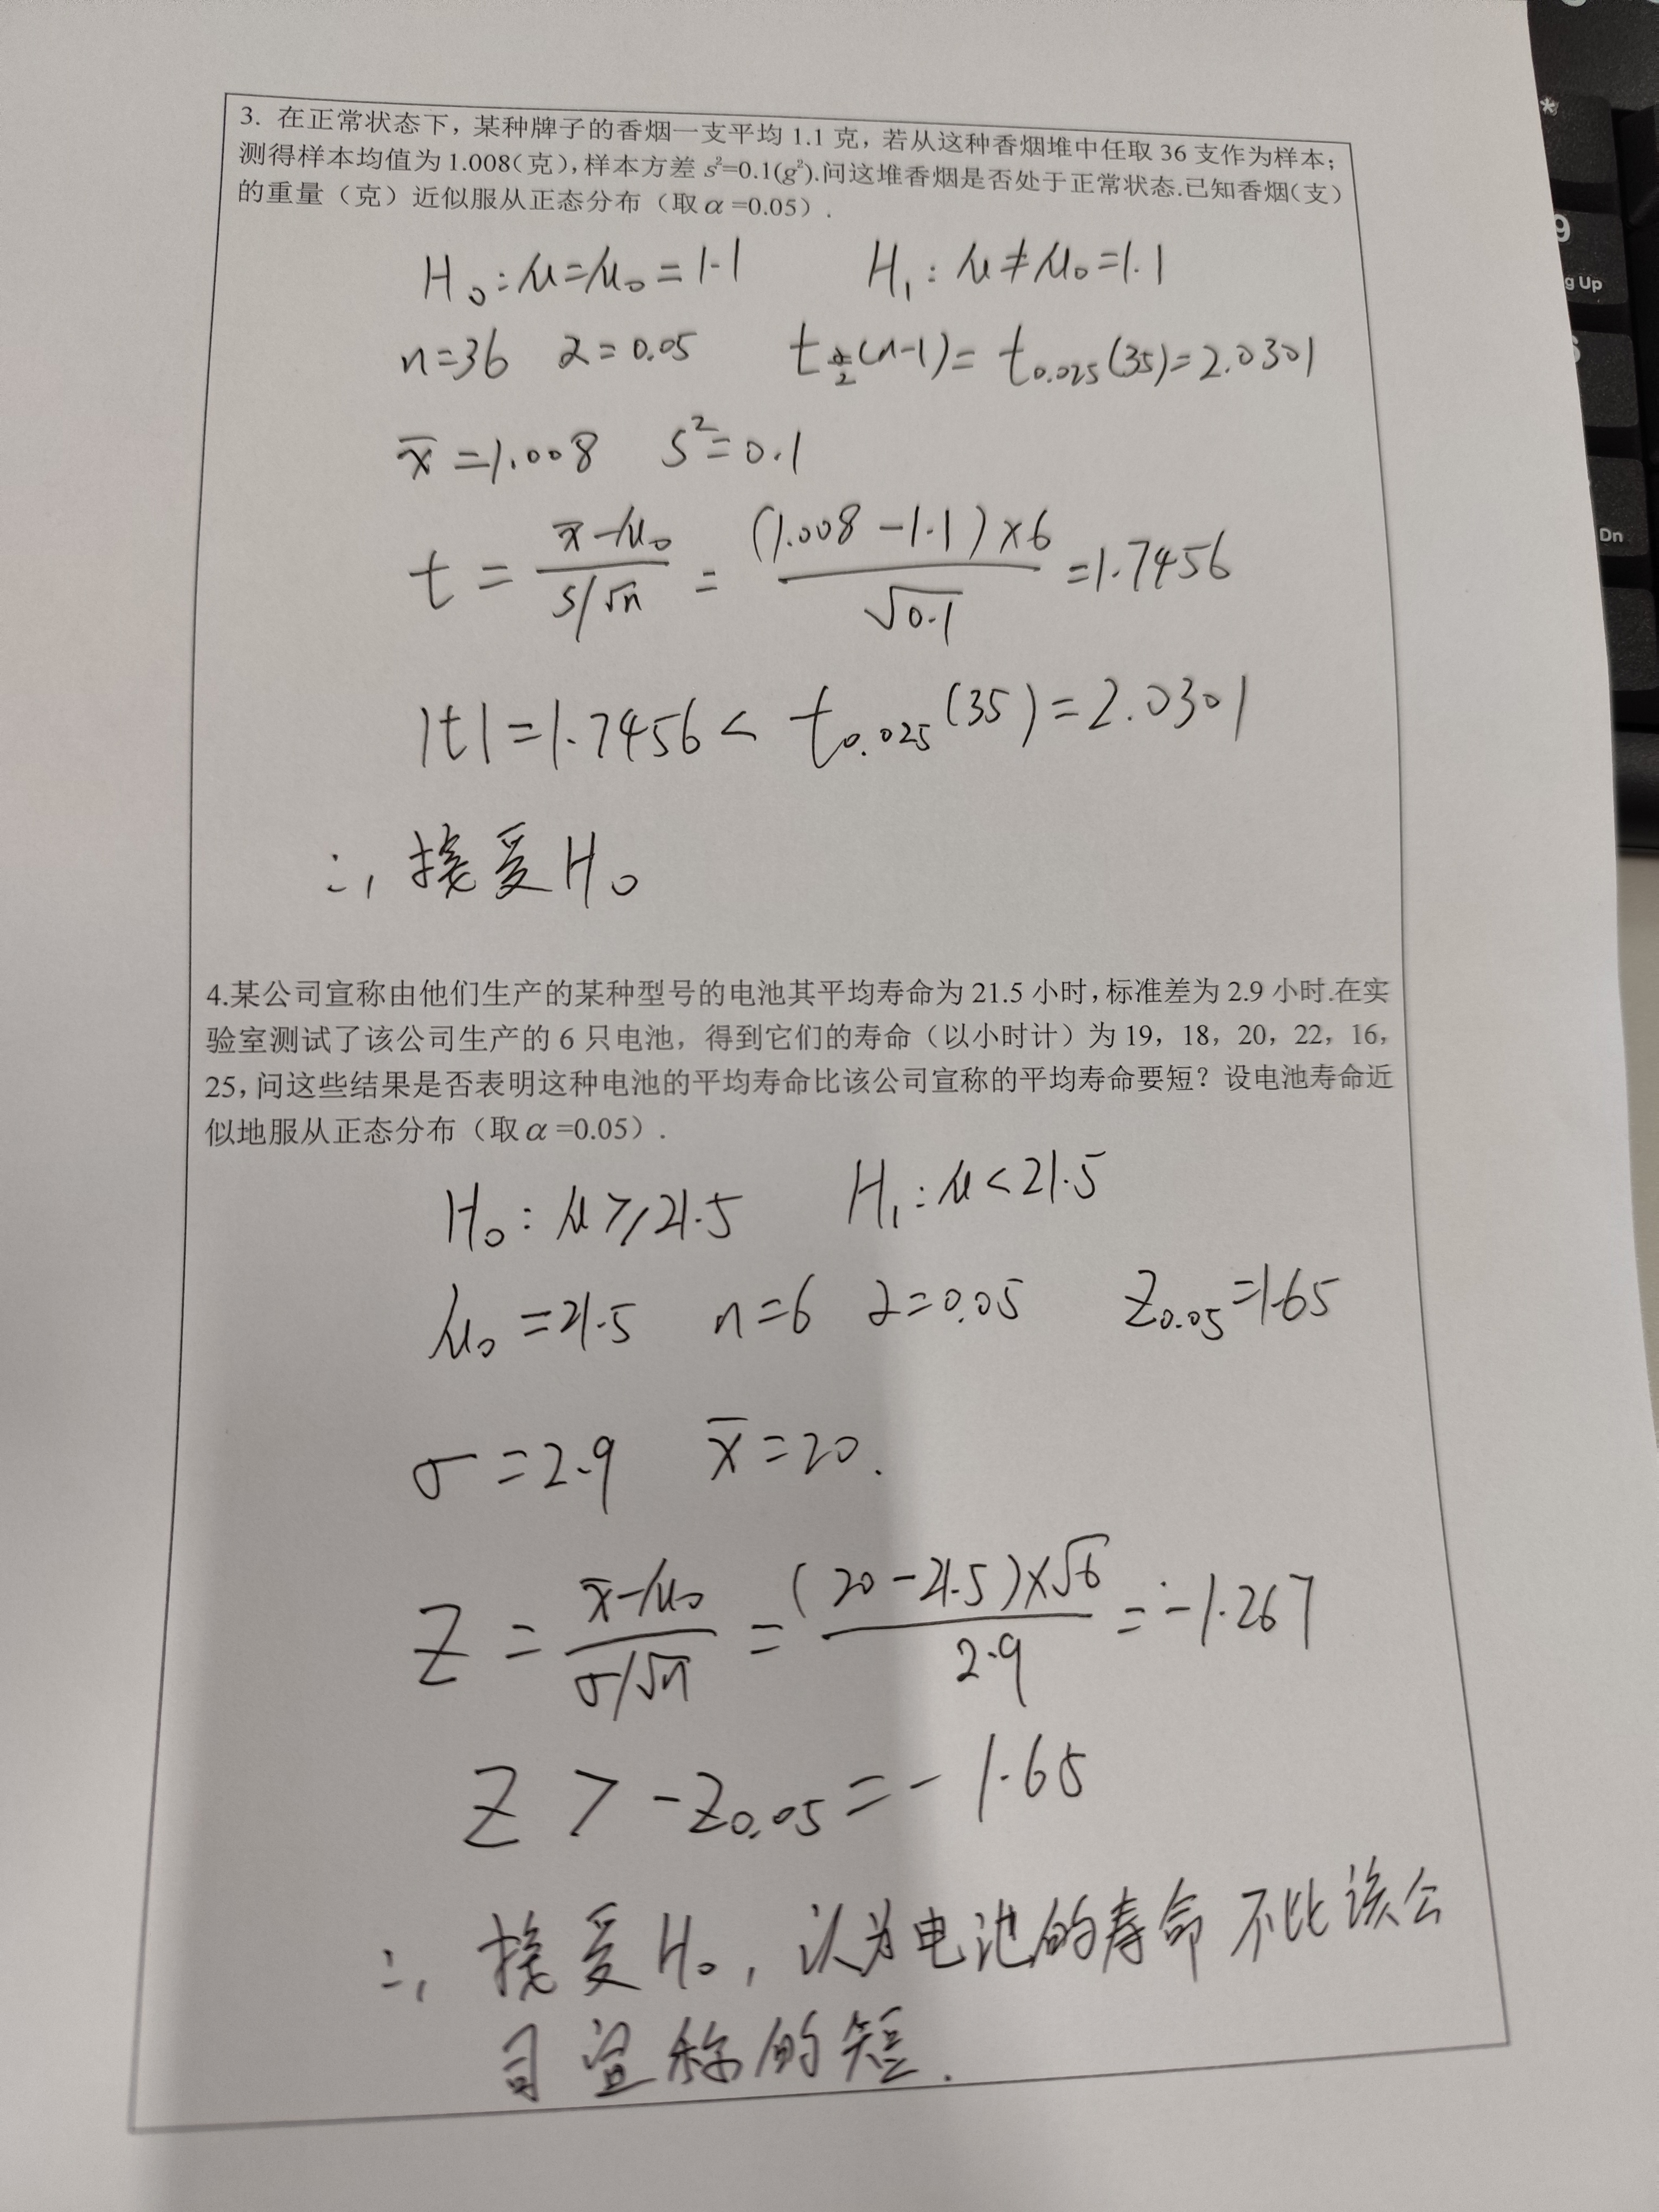 3. 在正常状态下，某种牌子的香烟一支平均 1.1 克，若从这种香烟堆中任取 36 支作为样本；
测得样本均值为 1.008(克)，样本方差 s²=0.1(g²).问这堆香烟是否处于正常状态.已知香烟(支)
的重量（克）近似服从正态分布（取 α =0.05）.
H₀: μ=μ₀=1.1 H₁: μ≠μ₀=1.1
n=36 α=0.05 t_{α/2}(n-1)= t₀.₀₂₅(35)=2.0301
x̄=1.008 S²=0.1
t = (x̄-μ₀)/(S/√n) = ((1.008-1.1)×6)/√0.1 =1.7456
|t|=1.7456< t₀.₀₂₅(35)=2.0301
∴, 接受H₀
4.某公司宣称由他们生产的某种型号的电池其平均寿命为 21.5 小时，标准差为 2.9 小时.在实
验室测试了该公司生产的 6 只电池，得到它们的寿命（以小时计）为 19，18，20，22，16，
25，问这些结果是否表明这种电池的平均寿命比该公司宣称的平均寿命要短？设电池寿命近
似地服从正态分布（取 α =0.05）.
H₀: μ≥21.5 H₁: μ<21.5
μ₀=21.5 n=6 α=0.05 Z₀.₀₅=1.65
σ=2.9 x̄=20.
Z = (x̄-μ₀)/(σ/√n) = ((20-21.5)×√6)/2.9 =-1.267
Z > -Z₀.₀₅ = -1.65
∴, 接受H₀, 认为电池的寿命不比该公
司宣称的短.
*
9
g Up
Dn